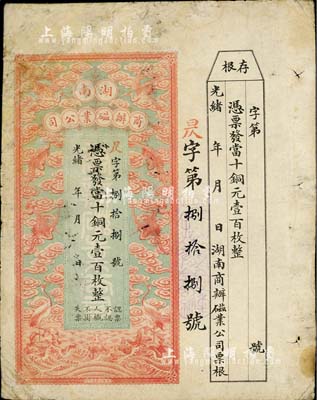 上海陽明拍賣
存根
字第 號
憑票發當十銅元壹百枚整
光緒 年 月 日湖南商辦磁業公司票根
字第捌拾捌號
湖南
商辦磁業公司
字第捌拾捌號
憑票發當十銅元壹百枚整
光緒 年 月 日
認票不認人
失票不掛
上海陽明拍賣